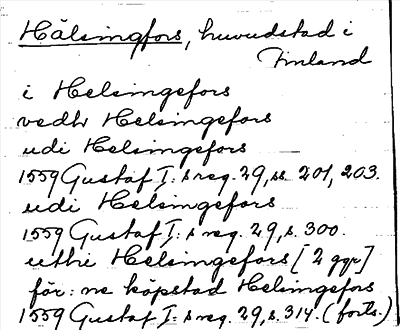 Hälsingfors, huvudstad i
Finland
i Helsingefors
vedh Helsingefors
udi Helsingefors
1559 Gustaf I:s reg. 29, ss. 201, 203.
udi Helsingefors
1559 Gustaf I:s reg. 29, s. 300.
uthi Helsingefors [2 ggr]
för:ne köpstad Helsingefors
1559 Gustaf I:s reg. 29, s. 314. (forts.)